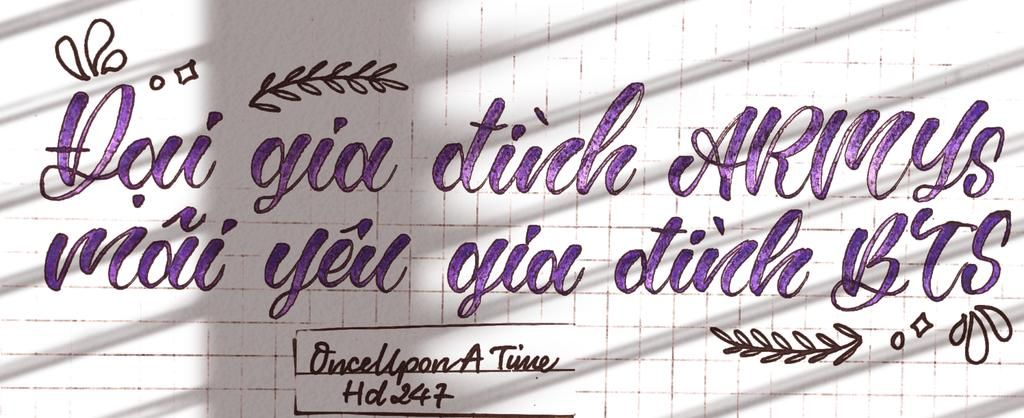 Đại gia đình ARMYs
mãi yêu gia đình BTS
OnceUpon A Time
Hd 247